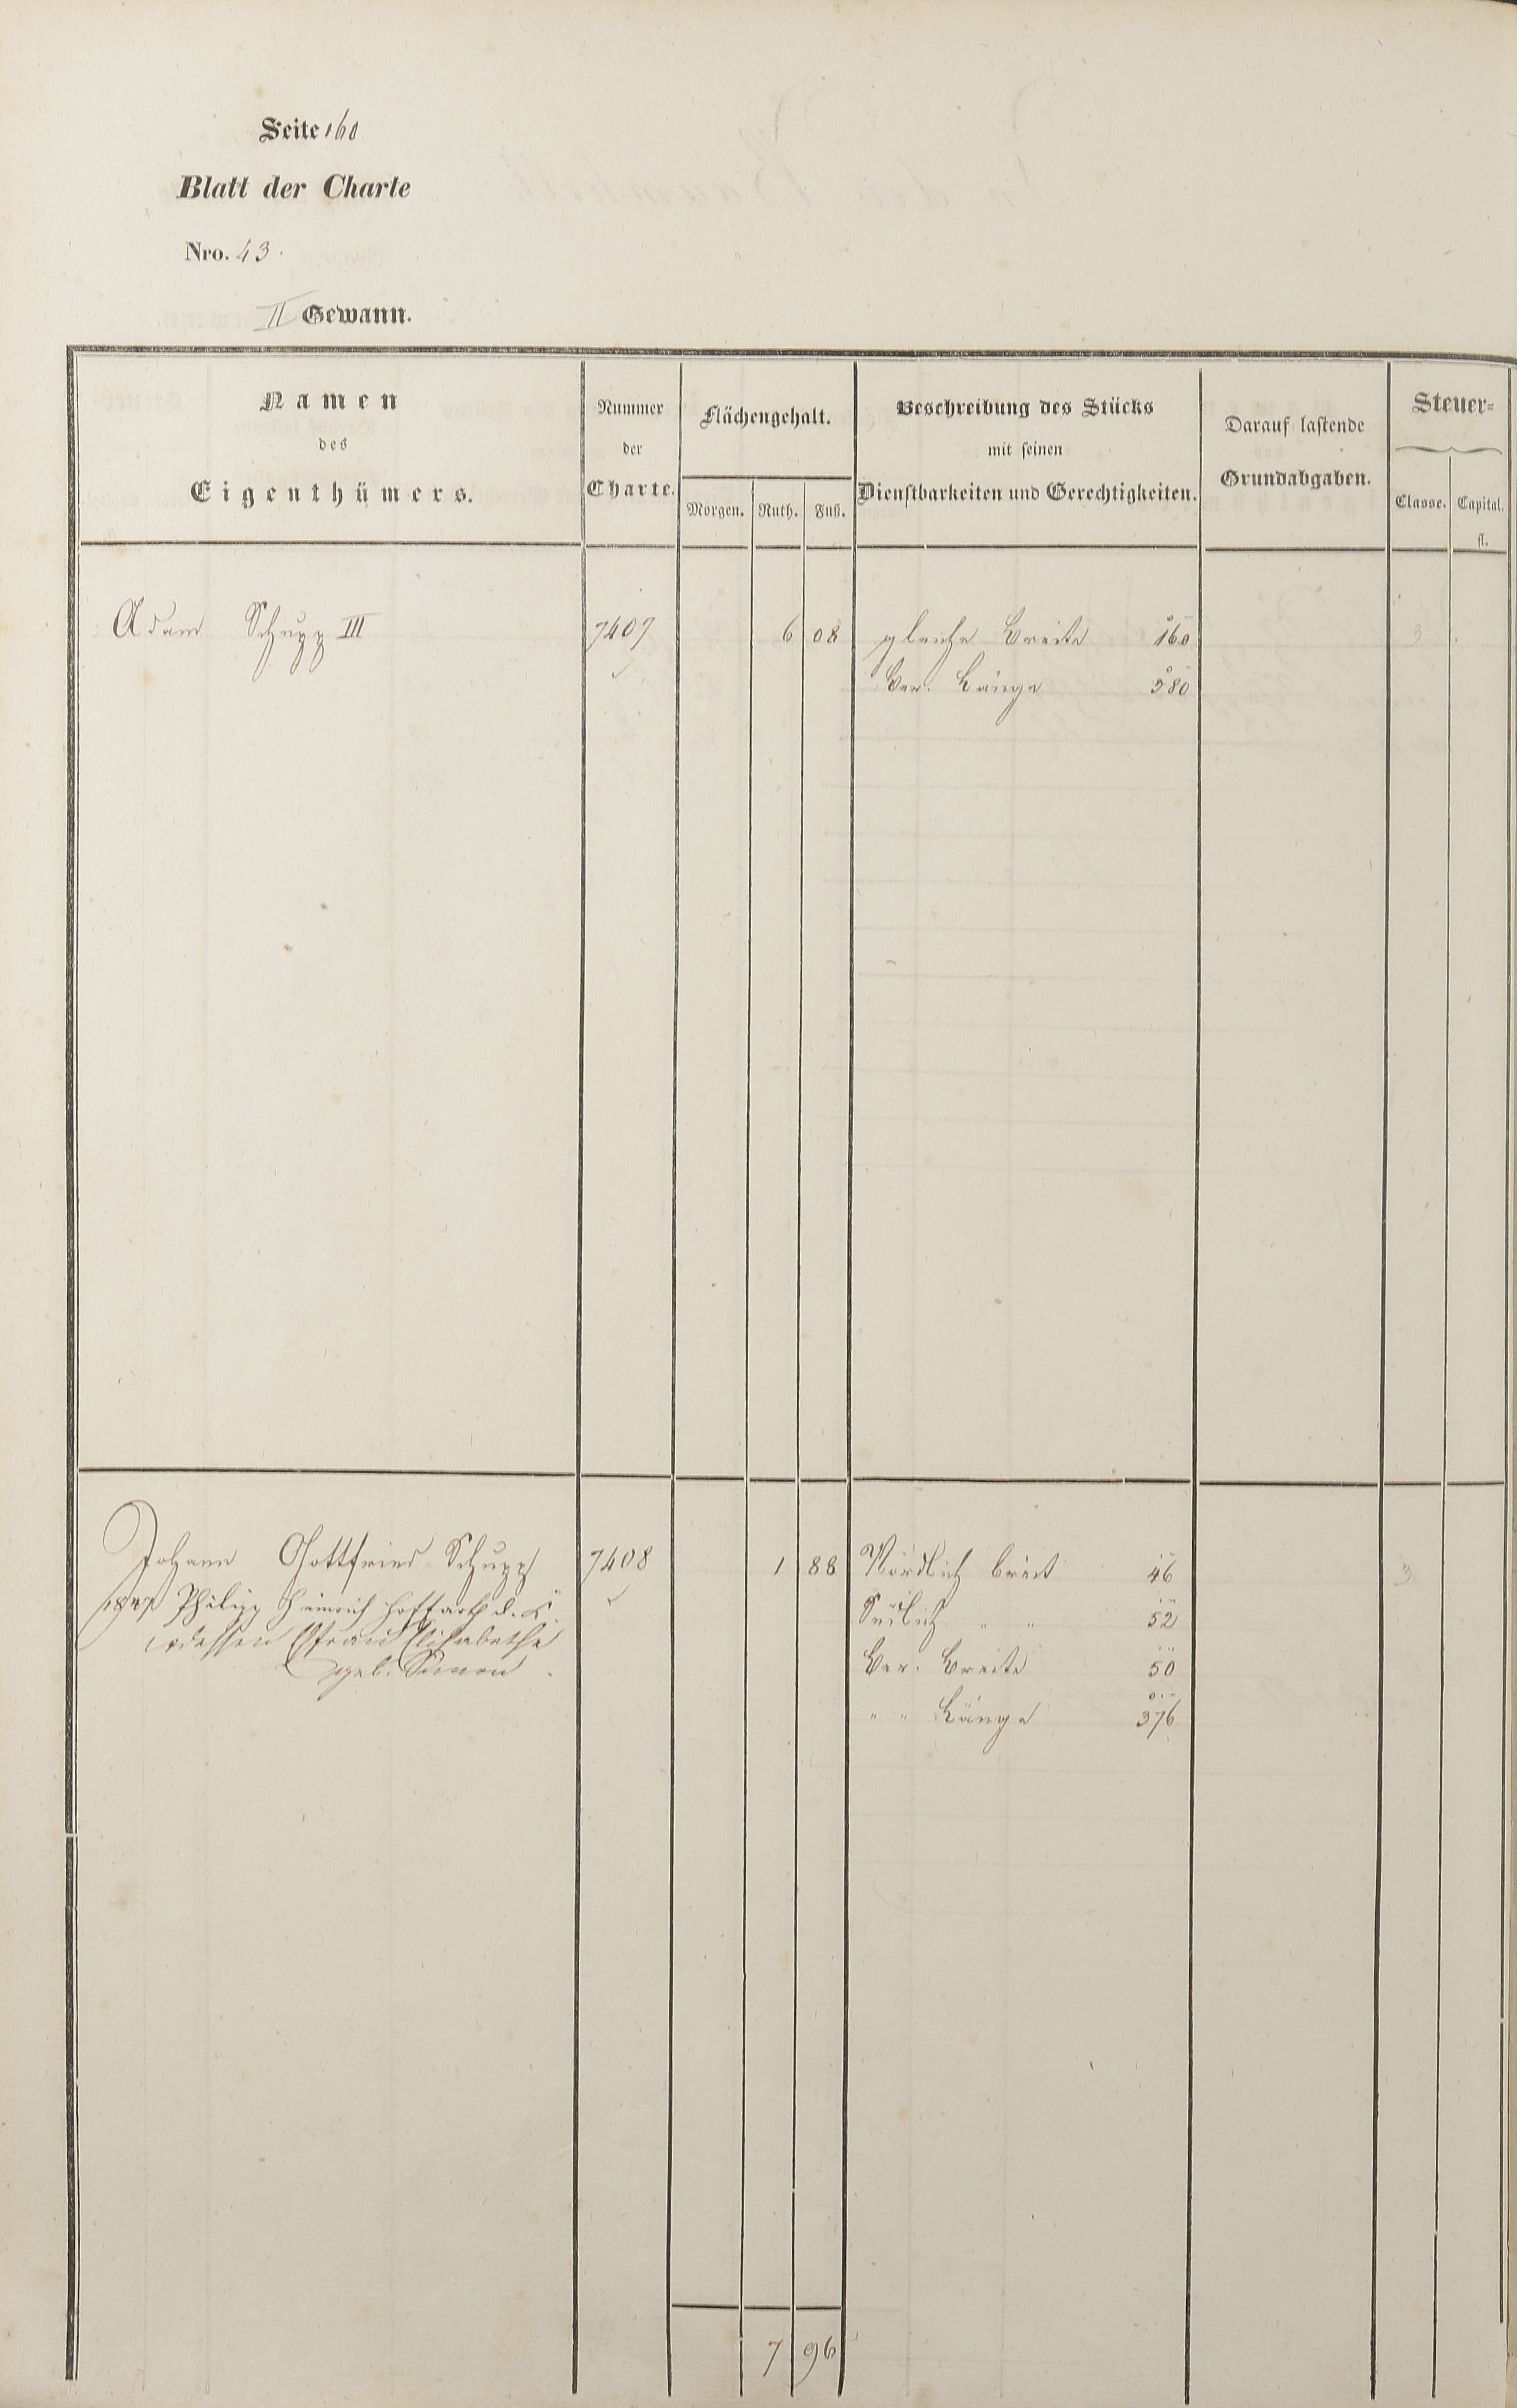 Seite 160
Blatt der Charte
Nro. 43.
II Gewann.
Namen des Eigenthümers.
Nummer der Charte.
Flächengehalt.
Morgen. Ruth. Fuß.
Beschreibung des Stücks mit seinen Dienstbarkeiten und Gerechtigkeiten.
Darauf lastende Grundabgaben.
Steuer=
Classe. Capital.
fl.
Adam Schupp III 7407 6 08 gleiche Breite 160 3
Ver. Länge 380
Johann Gottfried Schupp 7408 1 88 Nördlich breit 46 3
1847 Philipp Heinrich Hoffarth d. K.
Südlich " " 52
dessen Efrau Elisabetha
geb. Simon.
Ver. Breite 50
" " Länge 376
7 96